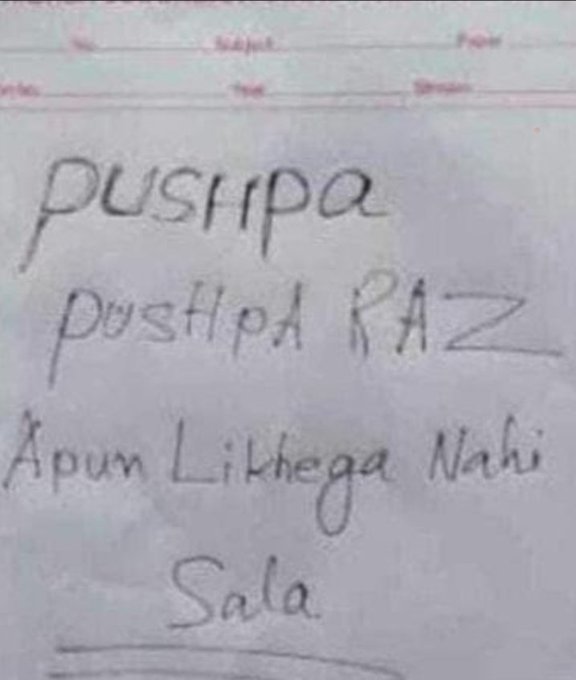 No. Subject Paper
Year Stream
pusHpa
pusHpA RAZ
Apun Likhega Nahi
Sala